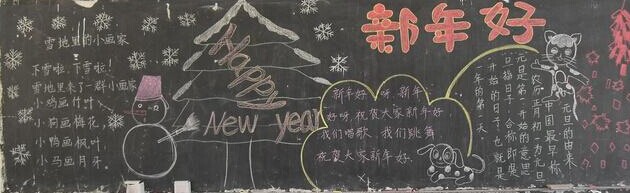 雪地里的小画家
下雪啦,下雪啦!
雪地里来了一群小画家
小鸡画竹叶,
小狗画梅花,
小鸭画枫叶,
小马画月牙。
Happy
New year
新年好
新年好呀,新年
好呀,祝贺大家新年好
我们唱歌,我们跳舞
祝贺大家新年好.
元旦的由来
中国最早称
农历正月初一为元旦
元是第一,开始的意思
旦指日子,合称即是
开始的日子,也就是
一年的第一天